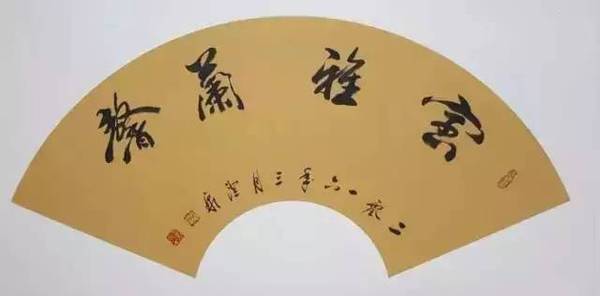 室雅蘭馨
二零一六年三月